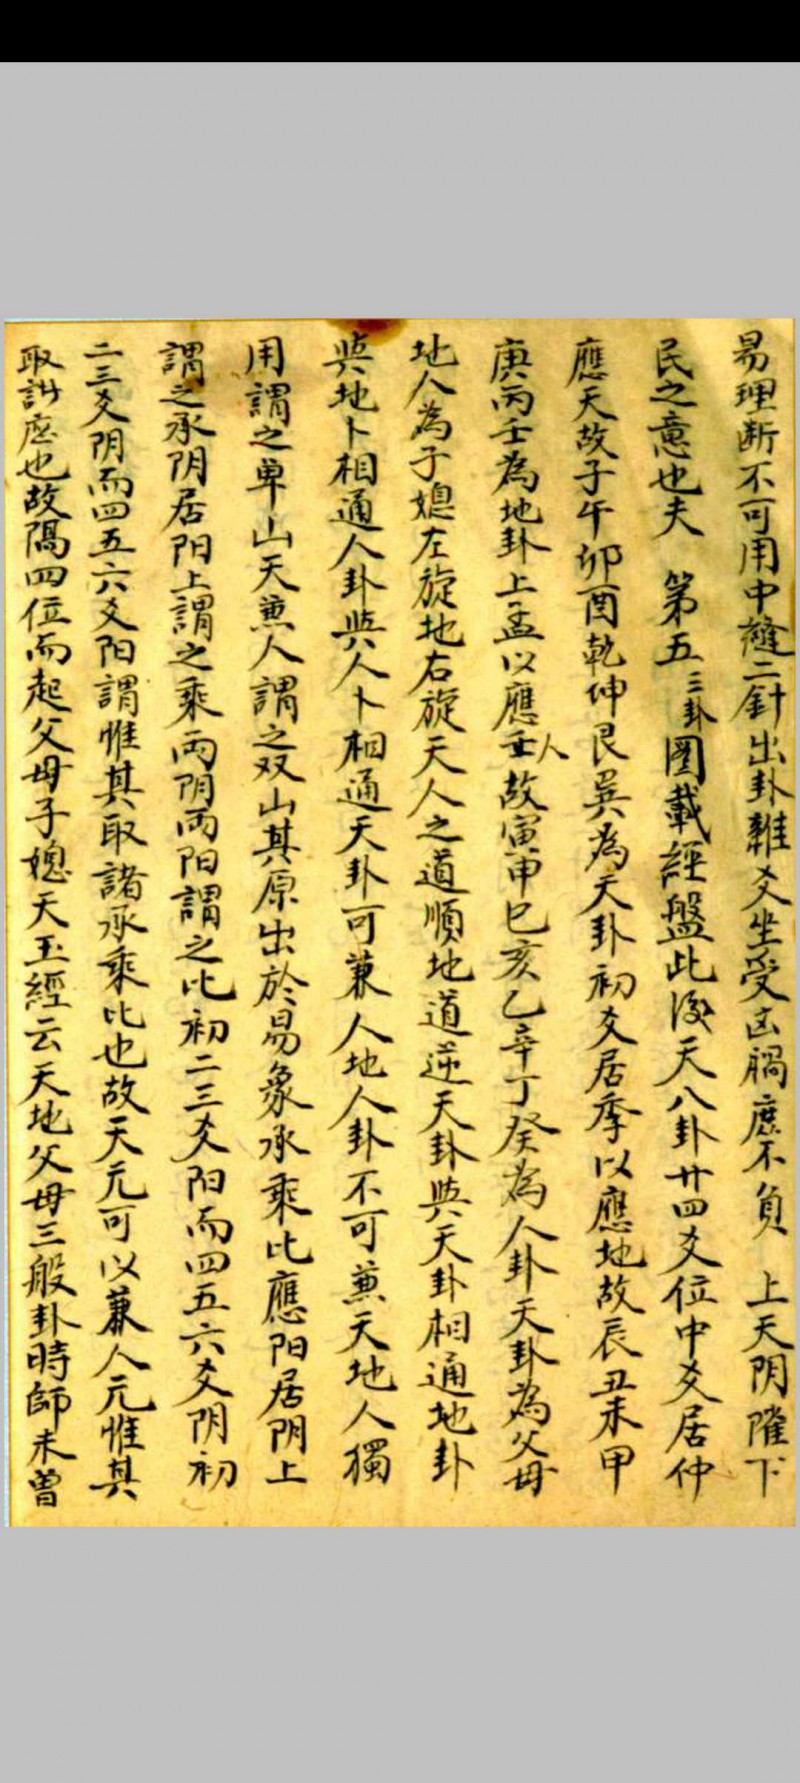 易理断不可用中縫二針出卦雜爻坐受凶禍庶不負　上天阴隲下
民之意也夫　第五三卦圖載經盤此後天八卦廿四爻位中爻居仲
應天故子午卯酉乾坤艮巽為天卦初爻居季以應地故辰丑未甲
庚丙壬為地卦上孟以應人故寅申巳亥乙辛丁癸為人卦天卦為父母
地人為子媳左旋地右旋天人之道順地道逆天卦與天卦相通地卦
與地卜相通人卦與人卜相通天卦可兼人地人卦不可兼天地人獨
用謂之单山天兼人謂之双山其原出於易象承乘比應阳居阴上
謂之承阴居阳上謂之乘两阴两阳謂之比初二三爻阳而四五六爻阴初
二三爻阴而四五六爻阳謂惟其取諸承乘比也故天元可以兼人元惟其
取諸應也故隔四位而起父母子媳天玉經云天地父母三般卦時師未曾